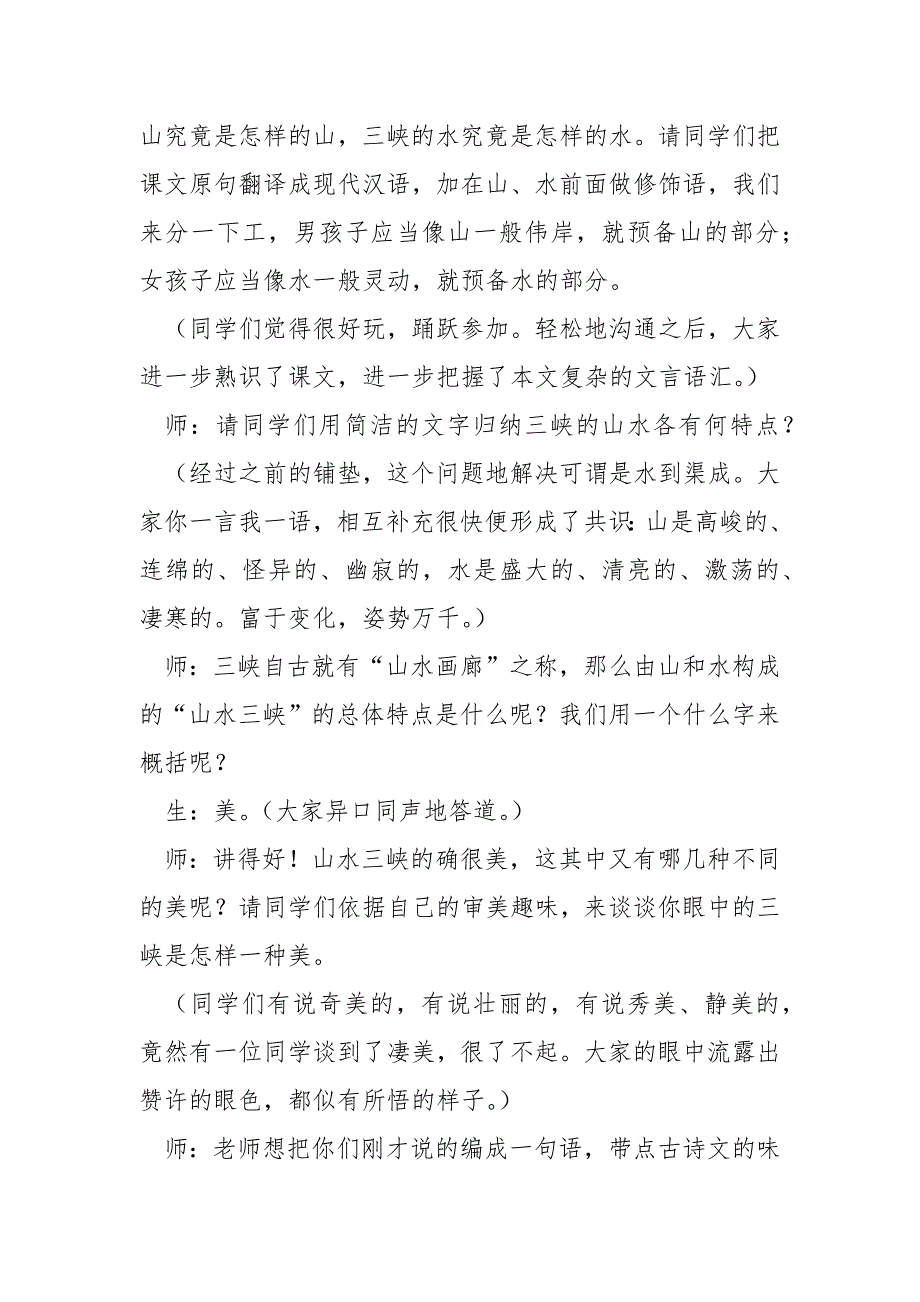 山究竟是怎样的山，三峡的水究竟是怎样的水。请同学们把
课文原句翻译成现代汉语，加在山、水前面做修饰语，我们
来分一下工，男孩子应当像山一般伟岸，就预备山的部分；
女孩子应当像水一般灵动，就预备水的部分。
（同学们觉得很好玩，踊跃参加。轻松地沟通之后，大家
进一步熟识了课文，进一步把握了本文复杂的文言语汇。）
师：请同学们用简洁的文字归纳三峡的山水各有何特点？
（经过之前的铺垫，这个问题地解决可谓是水到渠成。大
家你一言我一语，相互补充很快便形成了共识：山是高峻的、
连绵的、怪异的、幽寂的，水是盛大的、清亮的、激荡的、
凄寒的。富于变化，姿势万千。）
师：三峡自古就有“山水画廊”之称，那么由山和水构成
的“山水三峡”的总体特点是什么呢？我们用一个什么字来
概括呢？
生：美。（大家异口同声地答道。）
师：讲得好！山水三峡的确很美，这其中又有哪几种不同
的美呢？请同学们依据自己的审美趣味，来谈谈你眼中的三
峡是怎样一种美。
（同学们有说奇美的，有说壮丽的，有说秀美、静美的，
竟然有一位同学谈到了凄美，很了不起。大家的眼中流露出
赞许的眼色，都似有所悟的样子。）
师：老师想把你们刚才说的编成一句语，带点古诗文的味